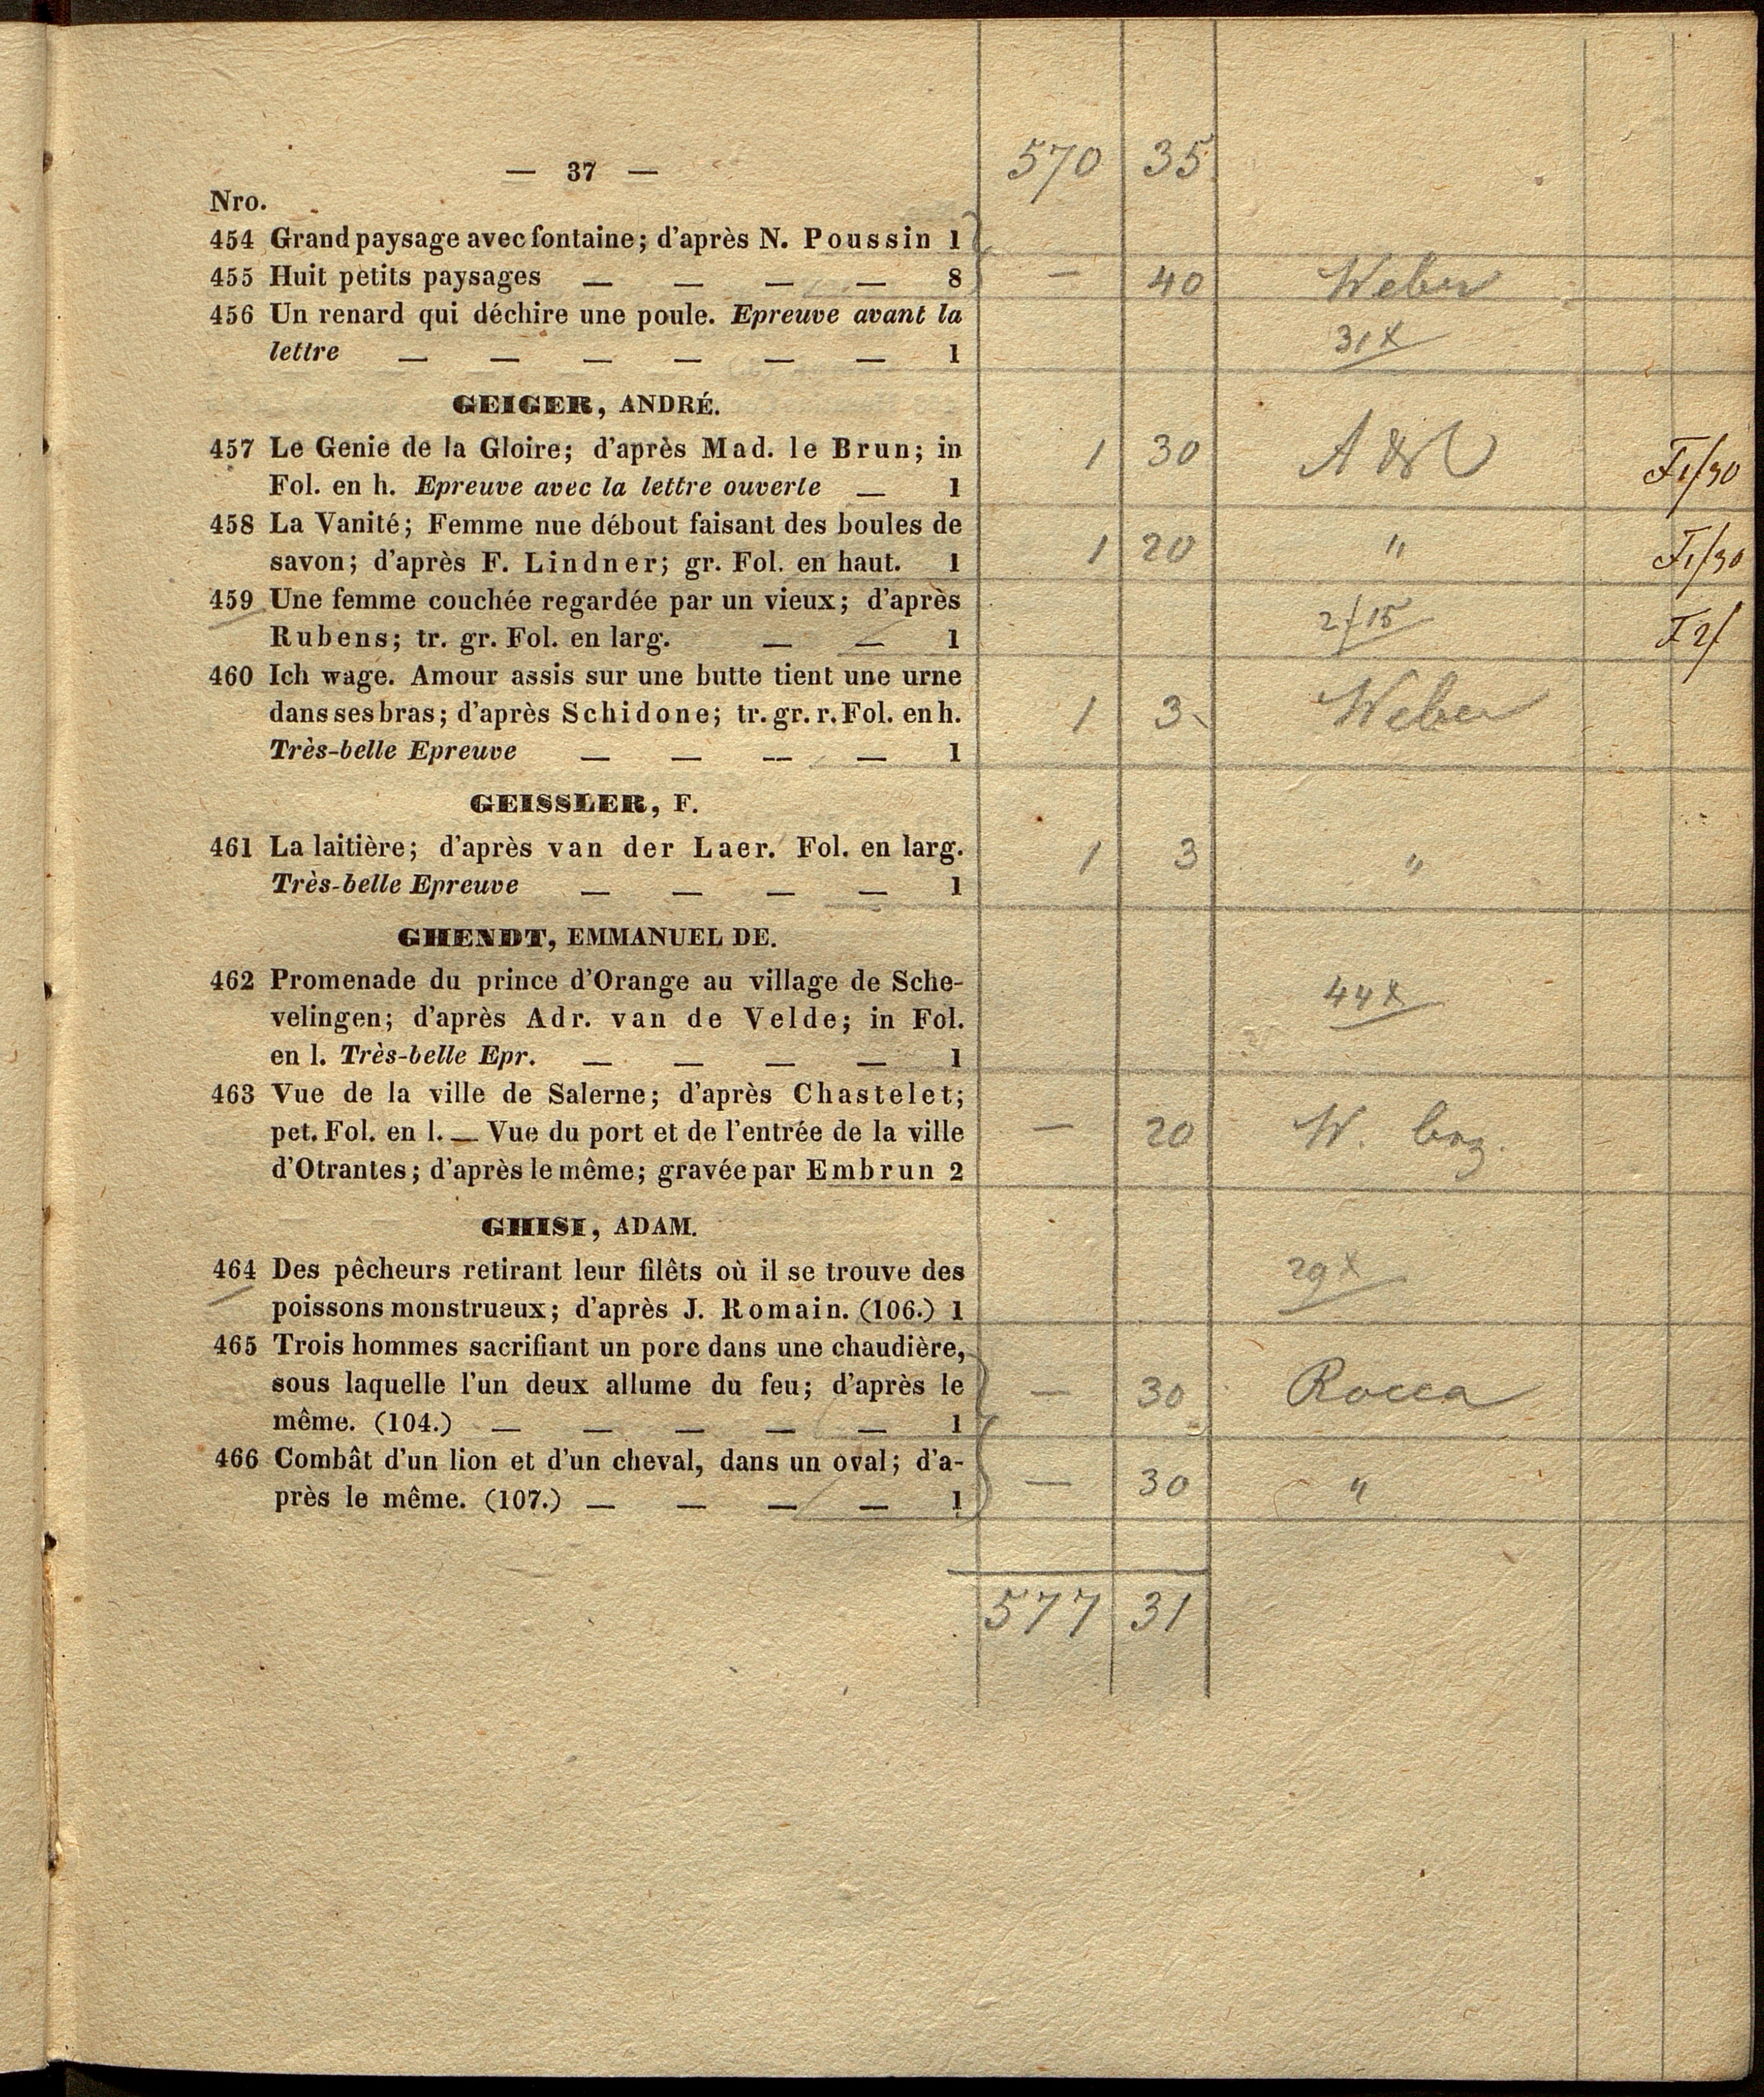 570 35
— 37 —
Nro.
454 Grand paysage avec fontaine; d'après N. Poussin 1
455 Huit petits paysages — — — — 8 — 40 Weber
456 Un renard qui déchire une poule. Epreuve avant la
lettre — — — — — — 1 31x
GEIGER, ANDRÉ.
457 Le Genie de la Gloire; d'après Mad. le Brun; in 1 30
Fol. en h. Epreuve avec la lettre ouverte — 1 F1/30
458 La Vanité; Femme nue débout faisant des boules de
savon; d'après F. Lindner; gr. Fol. en haut. 1 1 20 " F1/30
459 Une femme couchée regardée par un vieux; d'après
Rubens; tr. gr. Fol. en larg. — — 1 2f15 F2/
460 Ich wage. Amour assis sur une butte tient une urne
dans ses bras; d'après Schidone; tr. gr. r. Fol. en h. 1 3 Weber
Très-belle Epreuve — — — — 1
GEISSLER, F.
461 La laitière; d'après van der Laer. Fol. en larg. 1 3 "
Très-belle Epreuve — — — — 1
GHENDT, EMMANUEL DE.
462 Promenade du prince d'Orange au village de Sche- 44x
velingen; d'après Adr. van de Velde; in Fol.
en l. Très-belle Epr. — — — — 1
463 Vue de la ville de Salerne; d'après Chastelet;
pet. Fol. en l. — Vue du port et de l'entrée de la ville — 20 W.
d'Otrantes; d'après le même; gravée par Embrun 2
GHISI, ADAM.
464 Des pêcheurs retirant leur filêts où il se trouve des 29x
poissons monstrueux; d'après J. Romain. (106.) 1
465 Trois hommes sacrifiant un porc dans une chaudière,
sous laquelle l'un deux allume du feu; d'après le — 30 Rocca
même. (104.) — — — — — 1
466 Combât d'un lion et d'un cheval, dans un oval; d'a-
près le même. (107.) — — — — 1 — 30 "
577 31